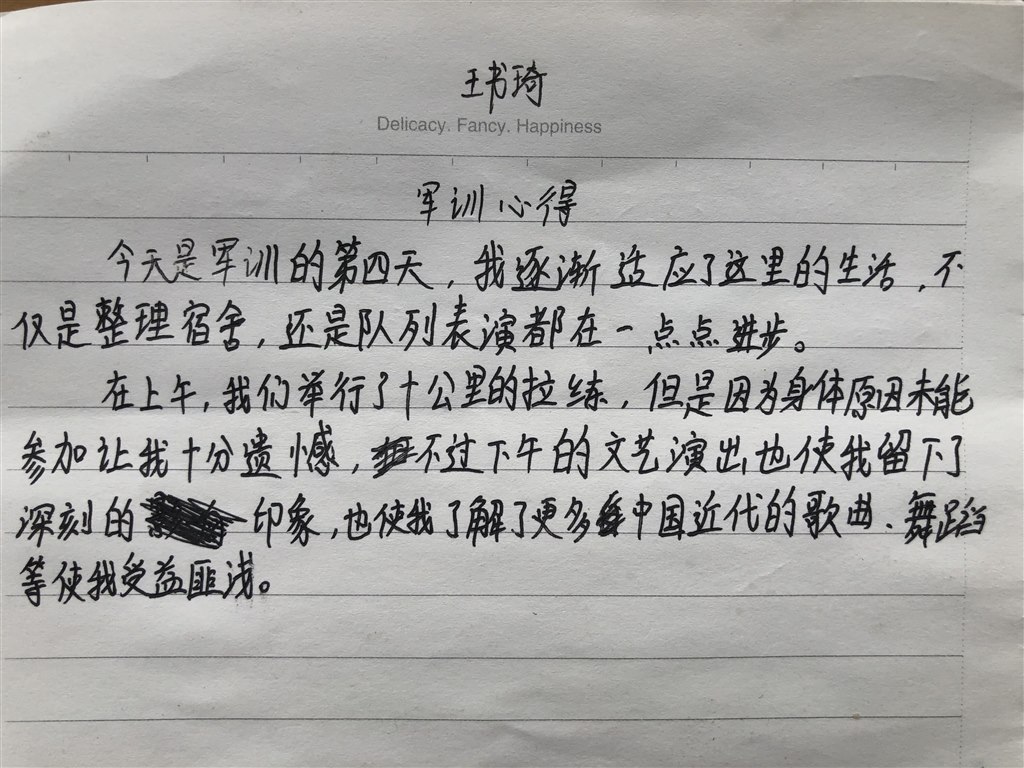 王书琦
Delicacy. Fancy. Happiness
军训心得
今天是军训的第四天，我逐渐适应了这里的生活，不
仅是整理宿舍，还是队列表演都在一点点进步。
在上午，我们举行了十公里的拉练，但是因为身体原因未能
参加让我十分遗憾，不过下午的文艺演出也使我留下了
深刻的印象，也使我了解了更多中国近代的歌曲、舞蹈
等使我受益匪浅。